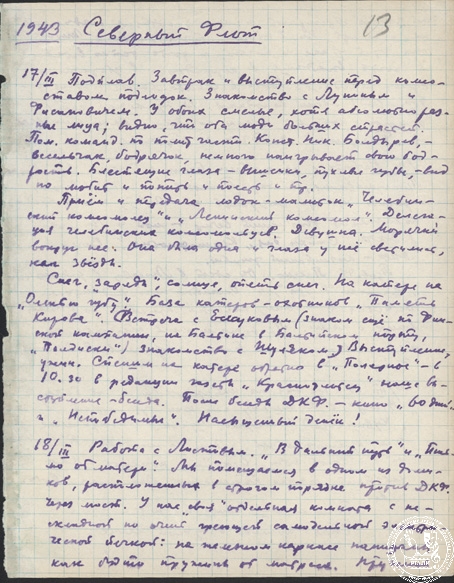 1943 Северный Флот
13
17/III Подплав. Завтрак и выступление перед комсоставом
составом подлодок. Знакомство с Луниным и
Фисановичем. У обоих смелые, хотя абсолютно раз-
ные лица; видно, что оба люди больших страстей.
Пом. команд. по полит. части. Конст. Ник. Болдырев, –
весельчак, бодрячок, немного наигрывает свою бод-
рость. Блестящие глаза – вишенки, пухлые губы, – вид-
но любит и попить и поесть и пр.
Приём и передача лодок-малюток „Челябин-
ский комсомолец" и „Ленинский комсомол". Делега-
ция челябинских комсомольцев. Девушка. Моряки
вокруг неё. Она была одна и глаза у неё светились,
как звёзды.
Снег, заряды, солнце, опять снег. На катере на
„Оленью губу". База катеров-охотников „Память
Кирова". Встреча с (знаком ещё по Фин-
ской кампании, на Балтике в Балтийском порту,
„Палдиски") Знакомство с Выступление,
ужин. Спешим на катере обратно в „Полярное" – в
10.30 в редакции газеты „Краснофлотец" наше вы-
ступление беседа. После беседы ДКФ. – кино
и „Непобедимые". Насыщенный денёк!
18/III Работа с Листовым. „В дальний путь" и „Пись-
мо от матери". Мы помещаемся в одном из доми-
ков, расположенных в строгом порядке против ДКФ.
через мост. У нас „своя" отдельная комната с не-
складной но очень греющей самодельной электри-
ческой бочкой: на железном каркасе
как будто пружины от матраса.